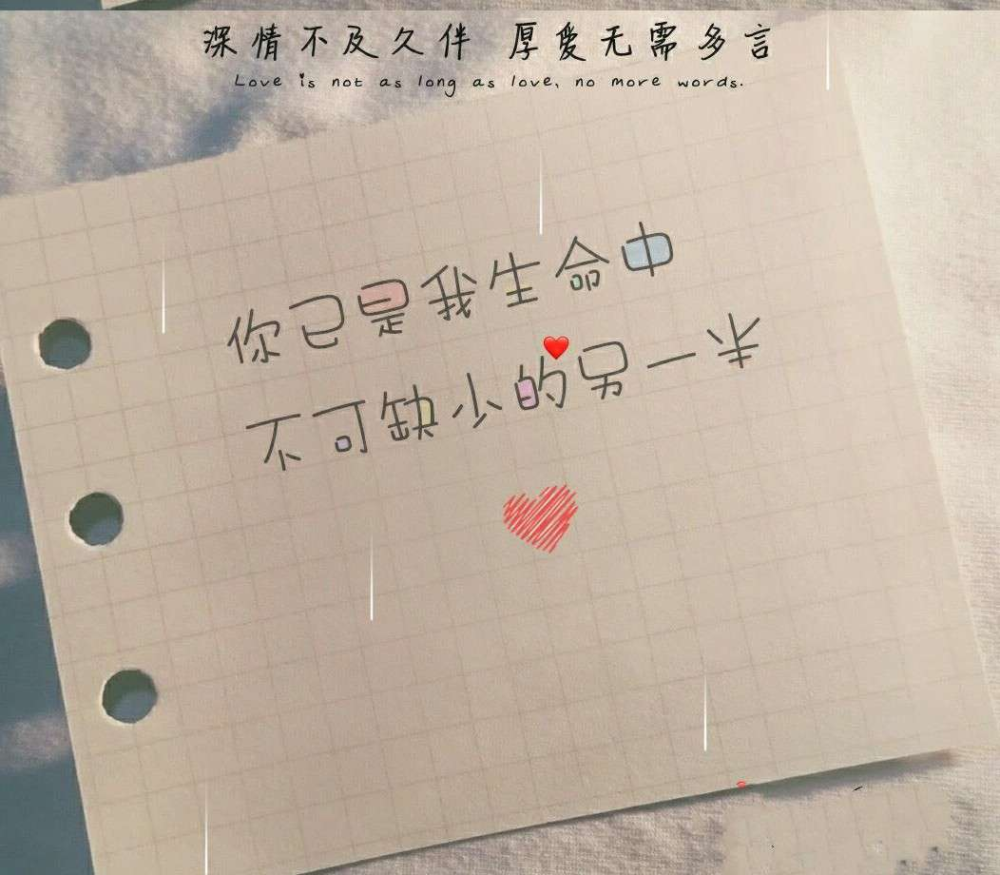 深情不及久伴 厚爱无需多言
Love is not as long as love, no more words.
你已是我生命中
不可缺少的另一半